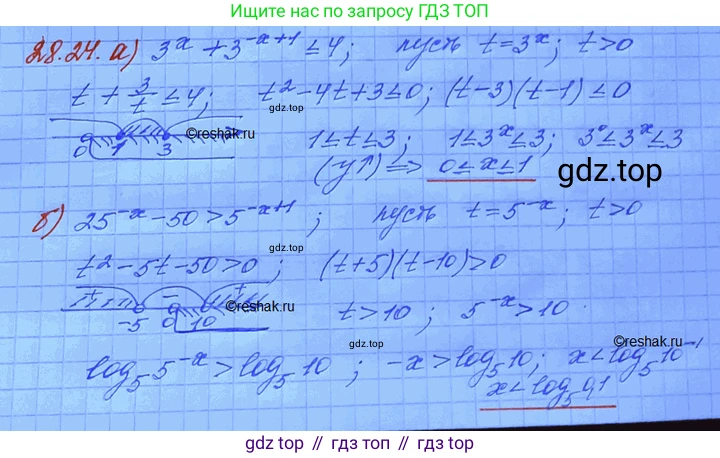 Ищите нас по запросу ГДЗ ТОП
28.24. а) 3^x + 3^{-x+1} ≤ 4; пусть t = 3^x; t > 0
t + 3/t ≤ 4; t² - 4t + 3 ≤ 0; (t-3)(t-1) ≤ 0
gdz.top
©reshak.ru
0 1 3
1 ≤ t ≤ 3; 1 ≤ 3^x ≤ 3; 3^0 ≤ 3^x ≤ 3
(у↑) => 0 ≤ x ≤ 1
gdz.top
б) 25^{-x} - 50 > 5^{-x+1}; пусть t = 5^{-x}; t > 0
gdz.top
t² - 5t - 50 > 0; (t+5)(t-10) > 0
+ - +
-5 0 10
t > 10; 5^{-x} > 10
©reshak.ru
gdz.top
log_5 5^{-x} > log_5 10; -x > log_5 10; x < log_5 10^{-1}
x < log_5 0,1
gdz.top // гдз топ // gdz.top